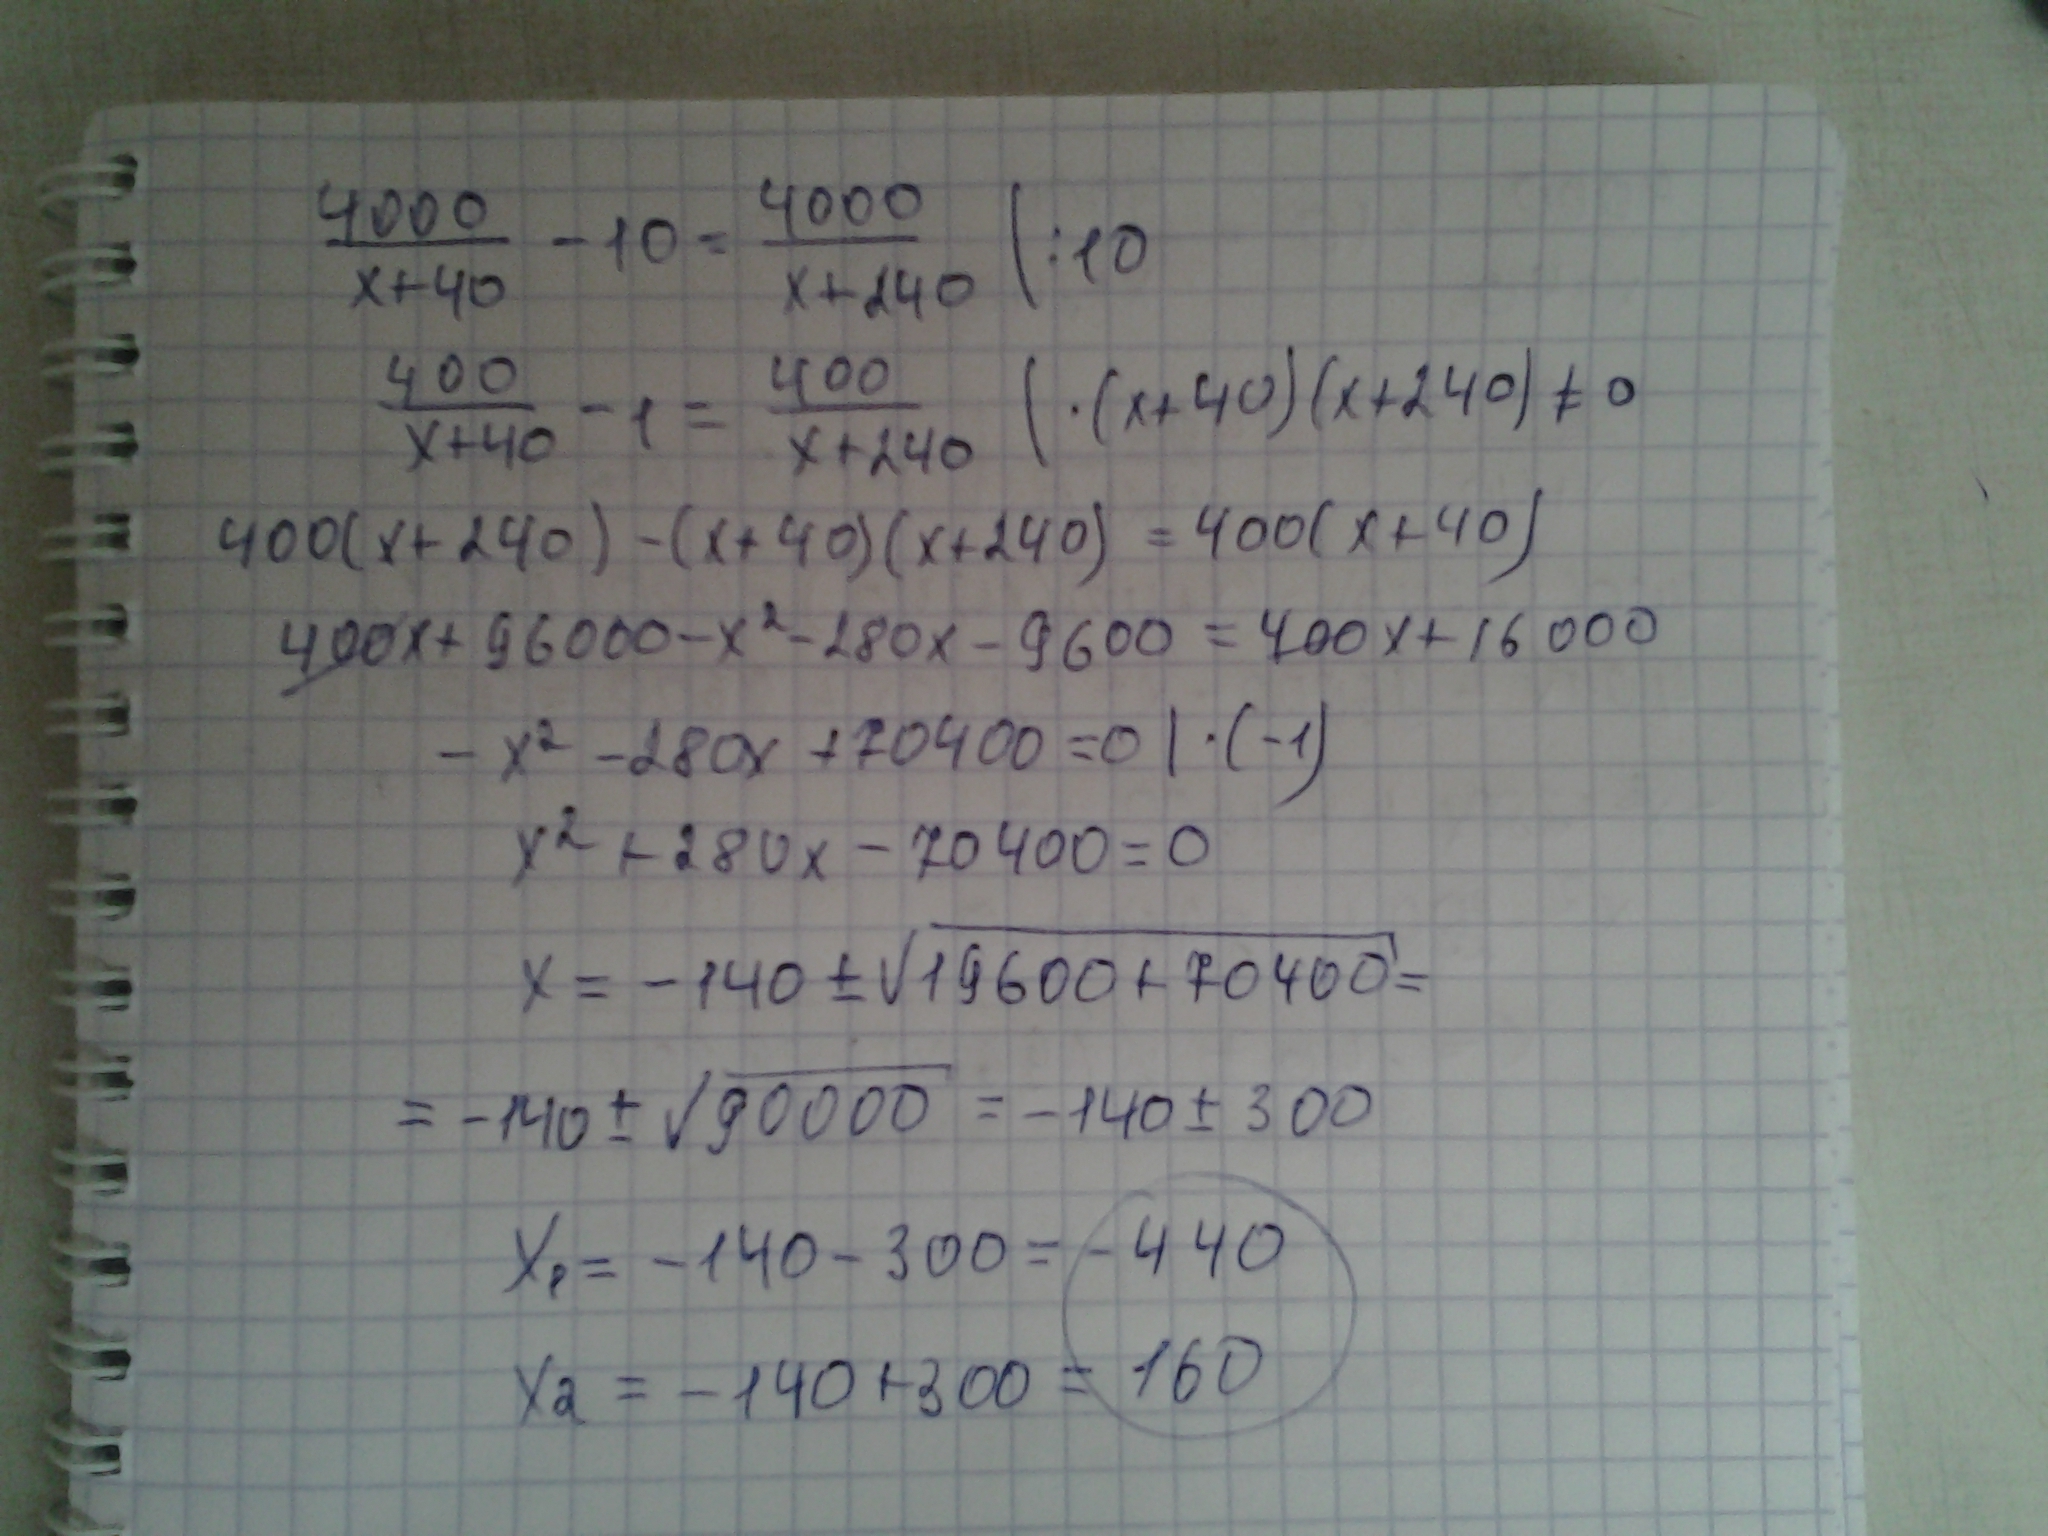 4000/(x+40) - 10 = 4000/(x+240) | :10
400/(x+40) - 1 = 400/(x+240) | ·(x+40)(x+240) ≠ 0
400(x+240) - (x+40)(x+240) = 400(x+40)
400x + 96000 - x² - 280x - 9600 = 400x + 16000
- x² - 280x + 70400 = 0 | ·(-1)
x² + 280x - 70400 = 0
x = -140 ± √(19600 + 70400) =
= -140 ± √90000 = -140 ± 300
x₁ = -140 - 300 = -440
x₂ = -140 + 300 = 160